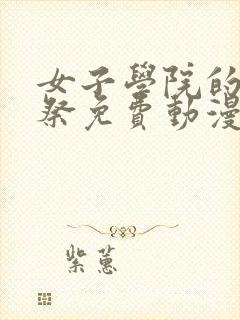 女子學院的
祭免費動漫
紫蕙